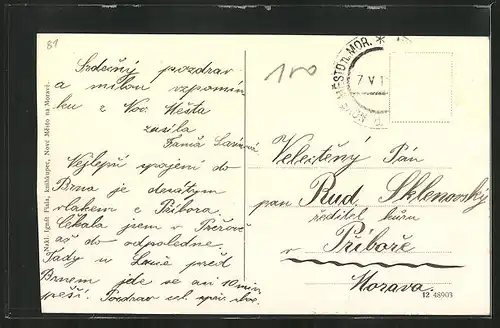 81
Srdečný pozdrav
a milou vzpomín-
ku z Nov. Města
zasílá
Nejlepší spojení do
Brna je desátým
vlakem z Příbora.
Čekala jsem v Přerově
až do odpoledne.
Tady u před
Brnem jde se asi 10 min
pěší. Pozdrav
Nákl. Ignát Fiala, knihkupec, Nové Město na Moravě.
100
NOVÉ MĚSTO MOR. *
7 V 1
Velectěný Pán
pan Rud. Sklenovský
ředitel kůru
v Příboře
Morava.
12 48903